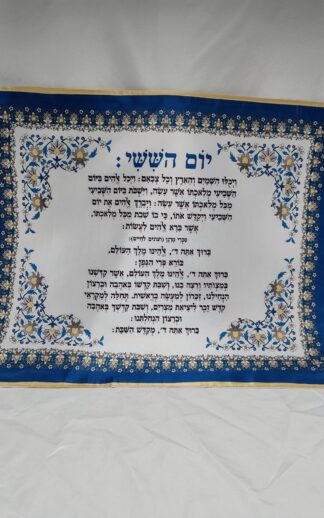 יום הששי:
ויכלו השמים והארץ וכל צבאם: ויכל אלהים ביום
השביעי מלאכתו אשר עשה, וישבת ביום השביעי
מכל מלאכתו אשר עשה: ויברך אלהים את יום
השביעי ויקדש אותו, כי בו שבת מכל מלאכתו,
אשר ברא אלהים לעשות:
סברי מרנן (ועונים לחיים):
ברוך אתה ד', אלהינו מלך העולם,
בורא פרי הגפן:
ברוך אתה ד', אלהינו מלך העולם, אשר קדשנו
במצותיו ורצה בנו, ושבת קדשו באהבה וברצון
הנחילנו, זכרון למעשה בראשית, תחלה למקראי
קדש זכר ליציאת מצרים, ושבת קדשך באהבה
וברצון הנחלתנו:
ברוך אתה ד', מקדש השבת: